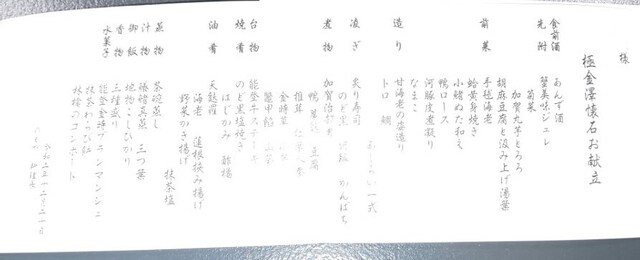 様
極 金澤懐石お献立
食前酒 あんず酒
先附 蟹美味ジュレ
菊菜
加賀丸芋とろろ
前菜 胡麻豆腐と汲み上げ湯葉
手毬海老
小鰭ぬた和え
蛤黄身焼き
鴨ロース
河豚皮煮凝り
なまこ
造り 甘海老の姿造り
トロ 鯛
あしらい一式
凌ぎ 炙り寿司
のど黒 かんぱち
煮物 加賀治部煮
鴨 豆腐
椎茸
金時草
台物 蟹甲餡
能登牛ステーキ
焼肴 のど黒塩焼き
はじかみ 酢橘
油肴 天麩羅
海老 蓮根挟み揚げ
野菜かき揚げ
抹茶塩
蒸物 茶碗蒸し
汁物 三つ葉
御飯 地物こしひかり
香物 三種盛り
水菓子 能登金時ブランマンジェ
抹茶わらび餅
林檎のコンポート